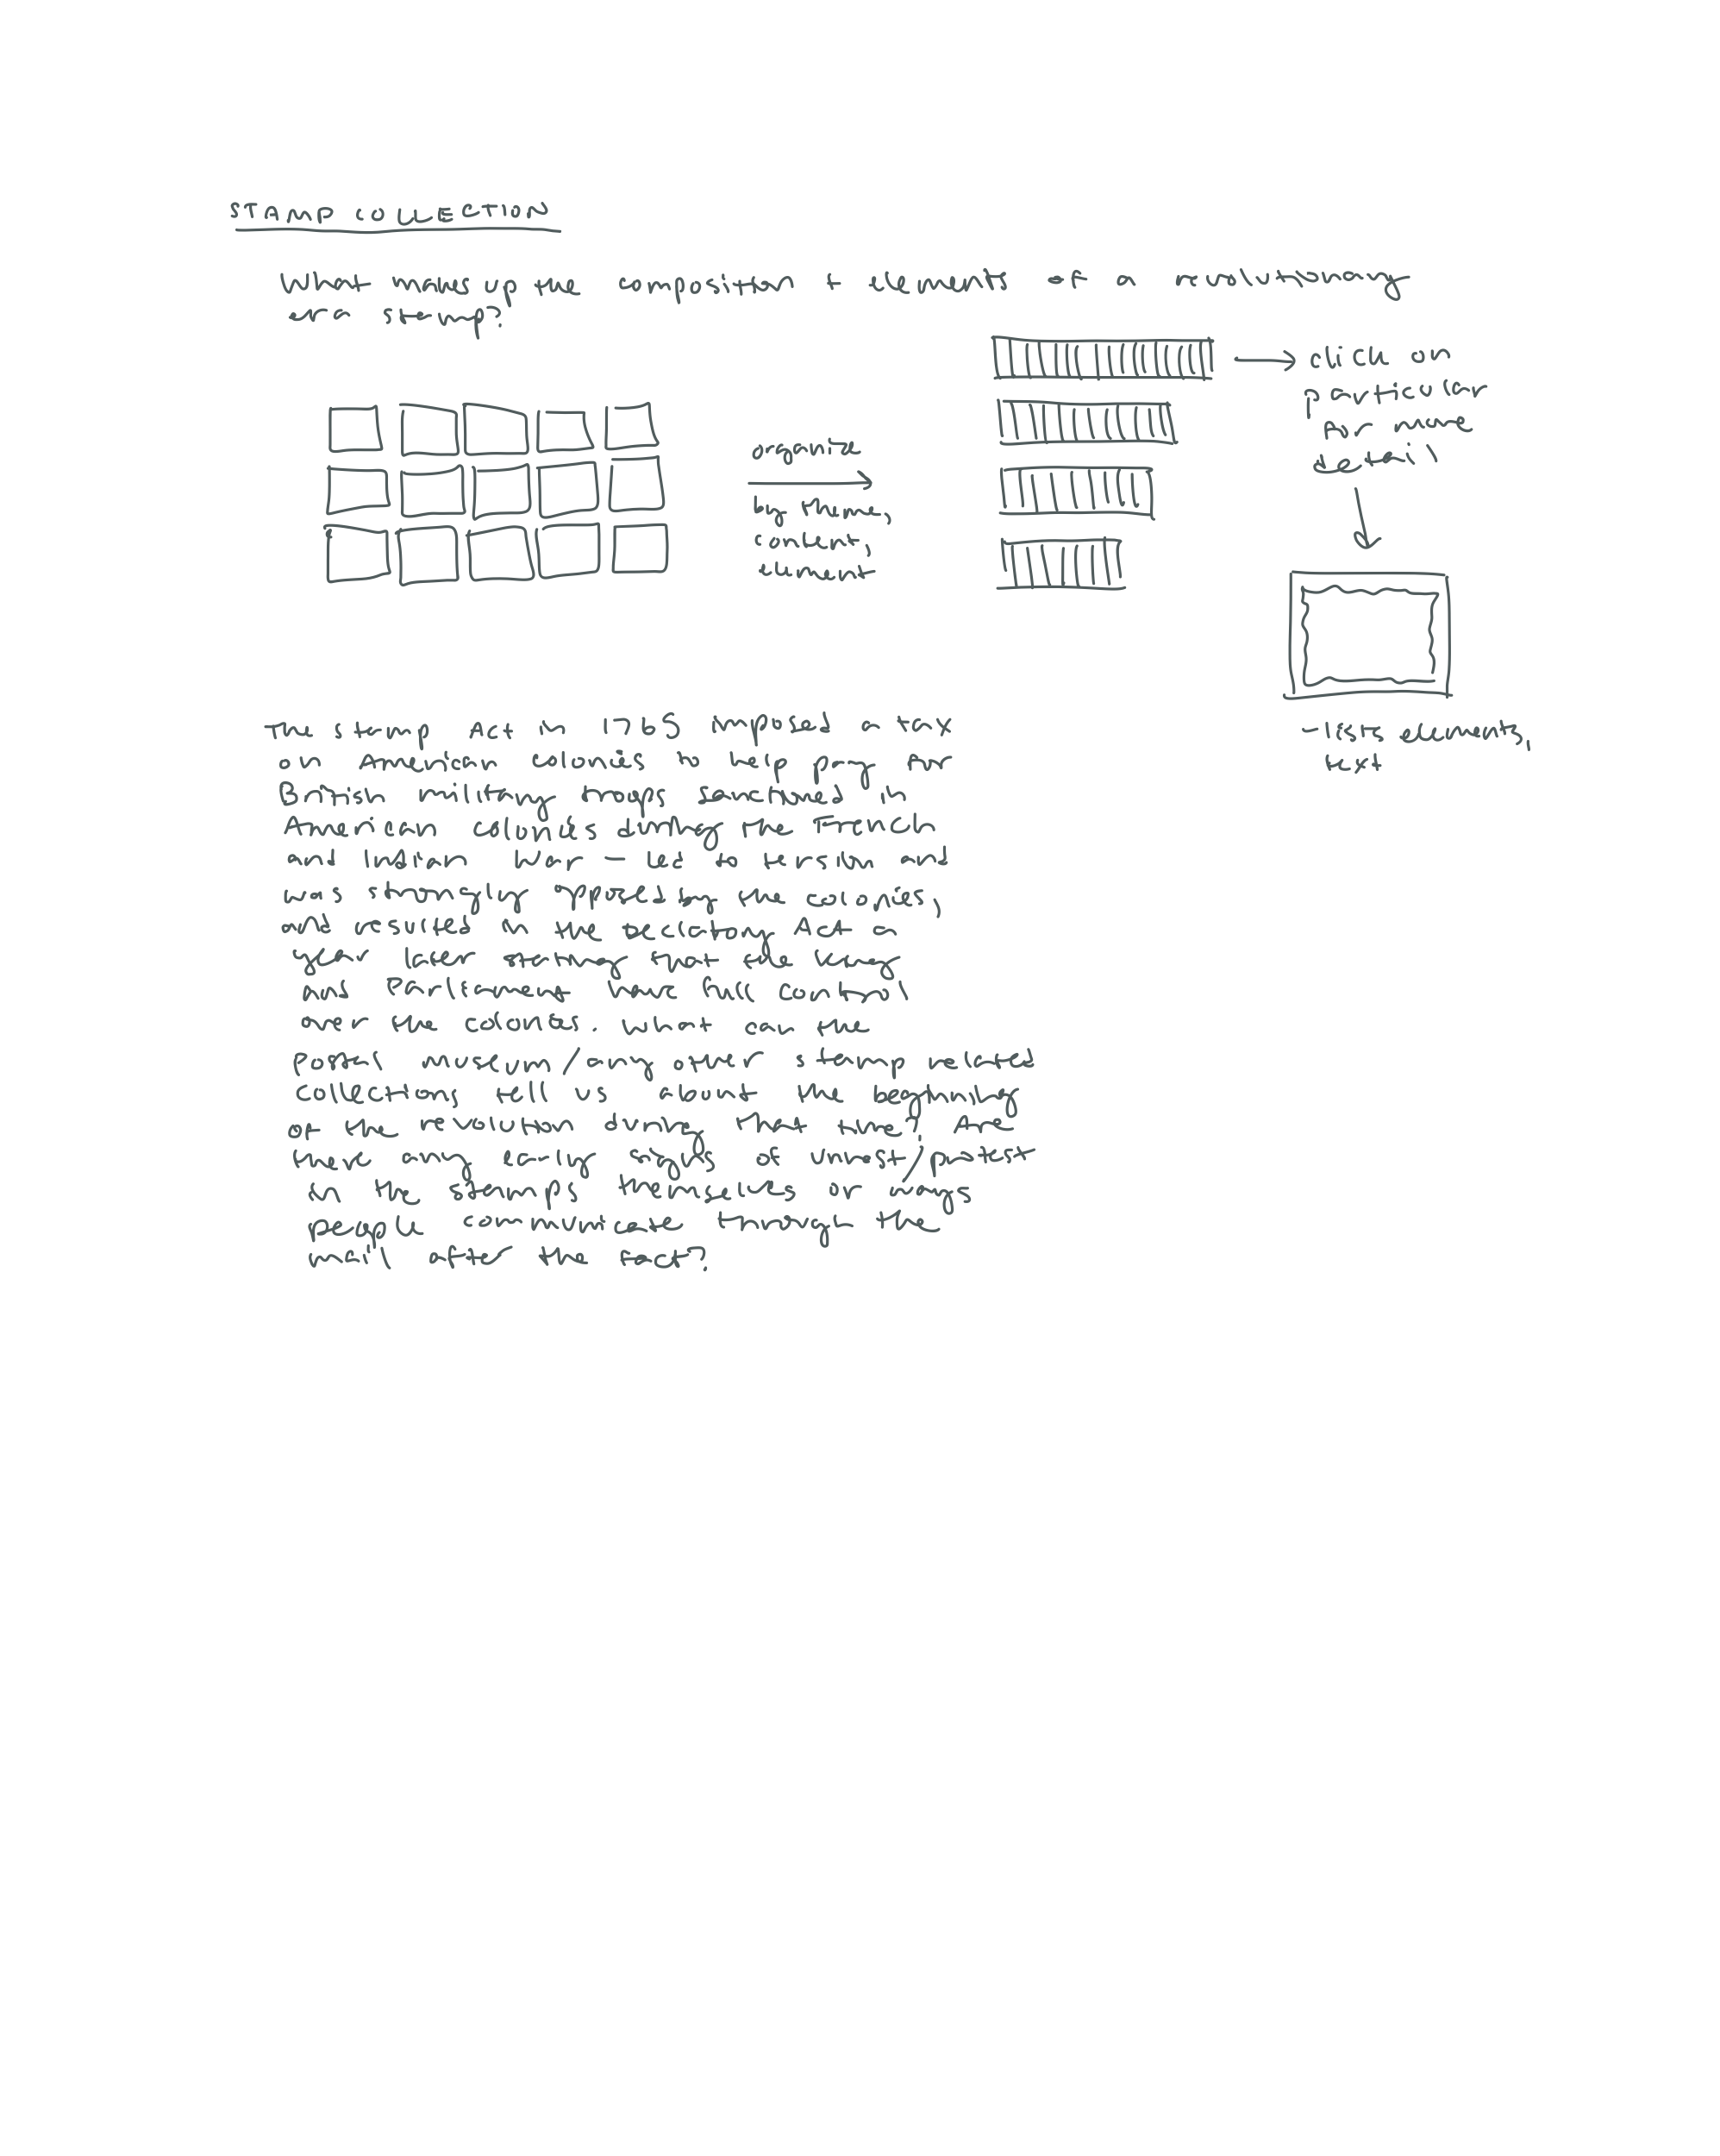 STAMP COLLECTION
What makes up the composition + elements of a revolutionary
era stamp?
click on
particular
for more
detail
organize
by theme,
content,
element
- lists elements,
text
The Stamp Act in 1765 imposed a tax
on American colonies to help pay for
British military troops sanctioned in
American colonies during the French
and Indian War – led to tension and
was strongly opposed by the colonies,
and resulted in the Declatory Act a
year later stating that the King
and Parliament have full control
over the colonies. What can the
Postal museum/any other stamp related
collections tell us about the beginning
of the revolution during that time? Are
there any early signs of unrest/protest
in the stamps themselves or ways
people communicate through the
mail after the fact?